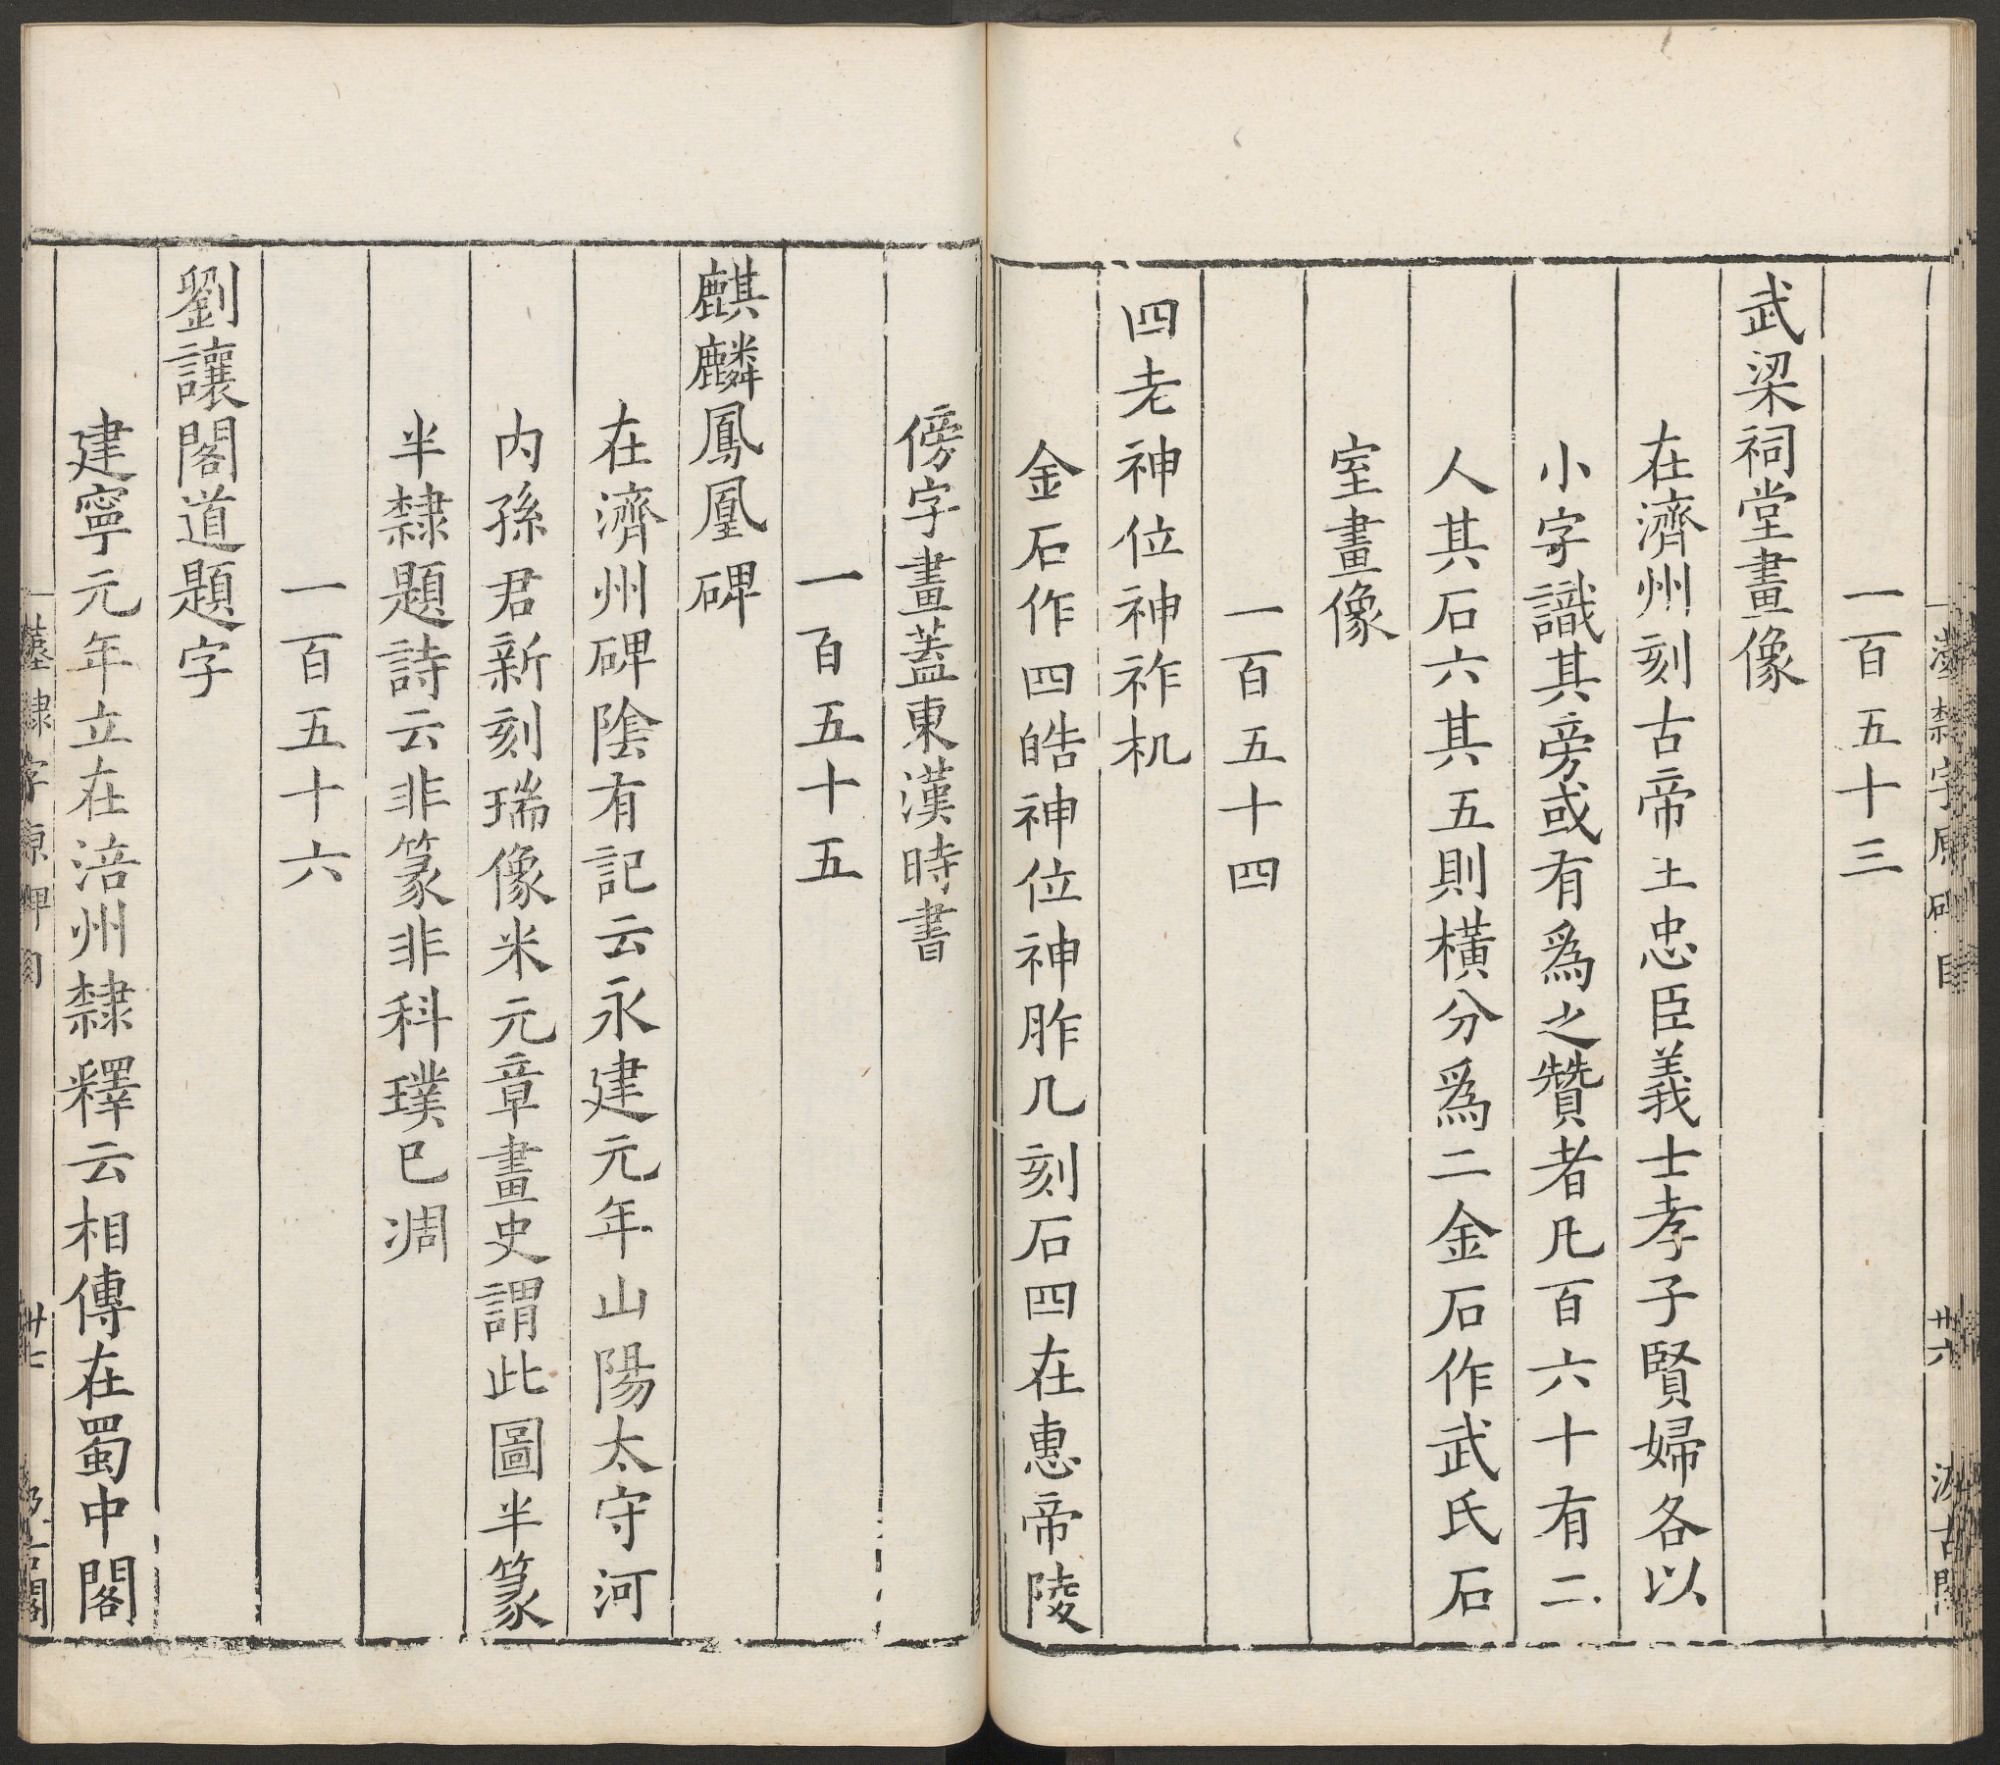 一百五十三
武梁祠堂畫像
在濟州刻古帝王忠臣義士孝子賢婦各以
小字識其旁或有為之贊者凡百六十有二
人其石六其五則橫分為二金石作武氏石
室畫像
一百五十四
四老神位神祚机
金石作四皓神位神胙几刻石四在惠帝陵
傍字畫蓋東漢時書
一百五十五
麒麟鳳凰碑
在濟州碑陰有記云永建元年山陽太守河
内孫君新刻瑞像米元章畫史謂此圖半篆
半隸題詩云非篆非科璞已凋
一百五十六
劉讓閣道題字
建寧元年立在涪州隸釋云相傳在蜀中閣